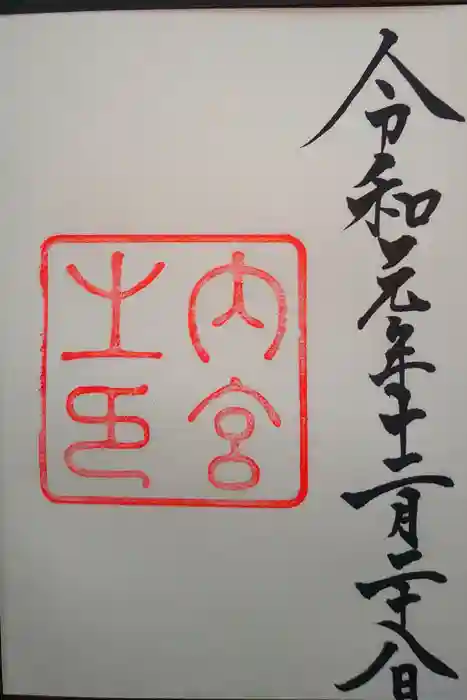 令和元年十二月二十八日
内宮
之印